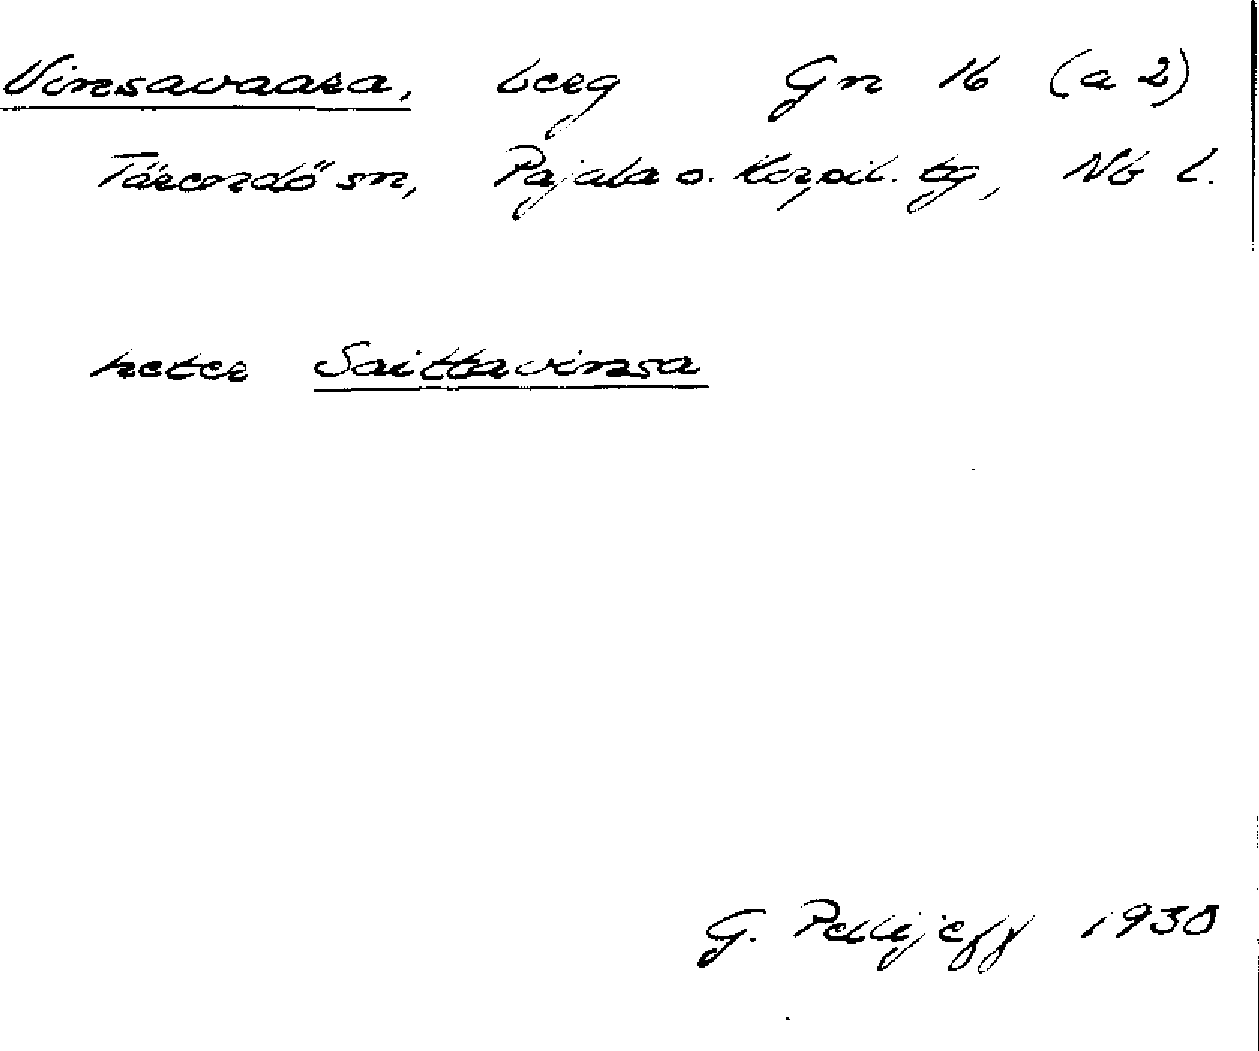 Vinsavaara, berg Gn 16 (a 2)
Tärendö sn, Pajala o. Korpil. tg, Nb l.
heter Saittavinsa
G. Pellijeff 1938